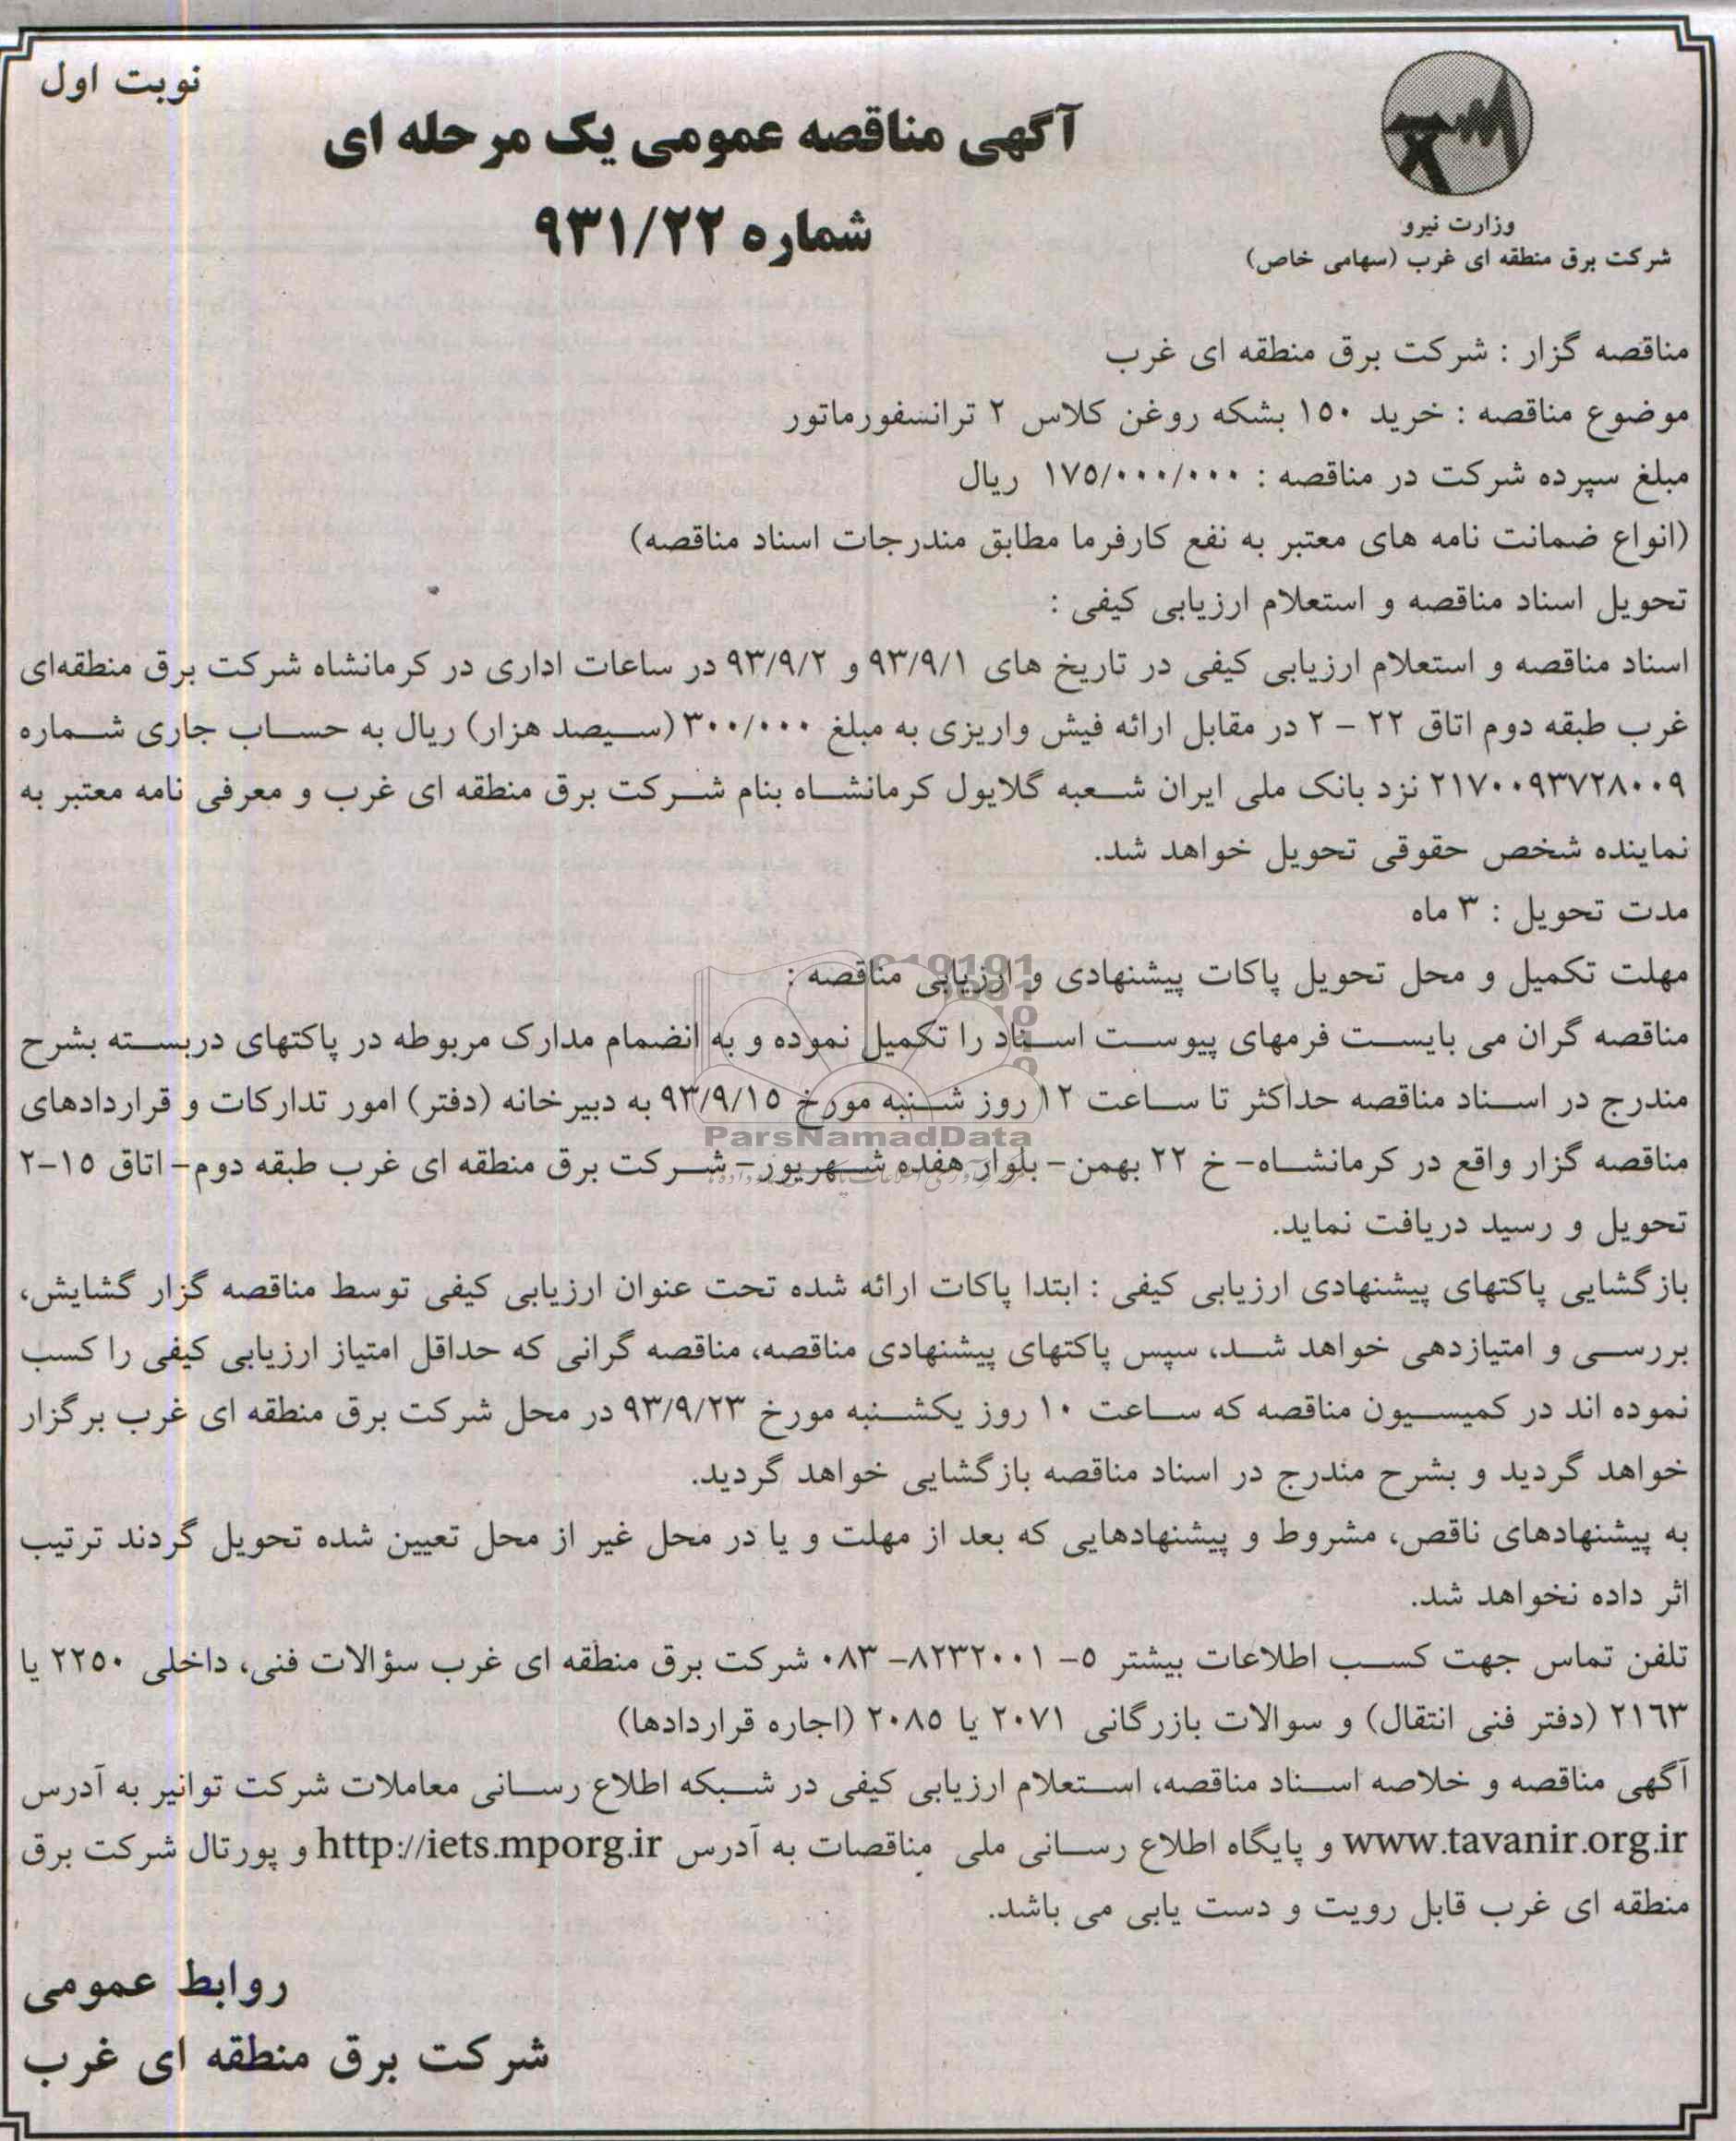 نوبت اول
آگهی مناقصه عمومی یک مرحله ای
شماره ۹۳۱/۲۲
وزارت نیرو
شرکت برق منطقه ای غرب (سهامی خاص)
مناقصه گزار : شرکت برق منطقه ای غرب
موضوع مناقصه : خرید ۱۵۰ بشکه روغن کلاس ۲ ترانسفورماتور
مبلغ سپرده شرکت در مناقصه : ۱۷۵/۰۰۰/۰۰۰ ریال
(انواع ضمانت نامه های معتبر به نفع کارفرما مطابق مندرجات اسناد مناقصه)
تحویل اسناد مناقصه و استعلام ارزیابی کیفی :
اسناد مناقصه و استعلام ارزیابی کیفی در تاریخ های ۹۳/۹/۱ و ۹۳/۹/۲ در ساعات اداری در کرمانشاه شرکت برق منطقه‌ای
غرب طبقه دوم اتاق ۲۲ – ۲ در مقابل ارائه فیش واریزی به مبلغ ۳۰۰/۰۰۰ (سیصد هزار) ریال به حساب جاری شماره
۲۱۷۰۰۹۳۷۲۸۰۰۹ نزد بانک ملی ایران شعبه گلایول کرمانشاه بنام شرکت برق منطقه ای غرب و معرفی نامه معتبر به
نماینده شخص حقوقی تحویل خواهد شد.
مدت تحویل : ۳ ماه
مهلت تکمیل و محل تحویل پاکات پیشنهادی و ارزیابی مناقصه :
مناقصه گران می بایست فرمهای پیوست اسناد را تکمیل نموده و به انضمام مدارک مربوطه در پاکتهای دربسته بشرح
مندرج در اسناد مناقصه حداکثر تا ساعت ۱۲ روز شنبه مورخ ۹۳/۹/۱۵ به دبیرخانه (دفتر) امور تدارکات و قراردادهای
ParsNamadData
مناقصه گزار واقع در کرمانشاه- خ ۲۲ بهمن- بلوار هفده شهریور- شرکت برق منطقه ای غرب طبقه دوم- اتاق ۱۵-۲
تحویل و رسید دریافت نماید.
بازگشایی پاکتهای پیشنهادی ارزیابی کیفی : ابتدا پاکات ارائه شده تحت عنوان ارزیابی کیفی توسط مناقصه گزار گشایش،
بررسی و امتیازدهی خواهد شد، سپس پاکتهای پیشنهادی مناقصه، مناقصه گرانی که حداقل امتیاز ارزیابی کیفی را کسب
نموده اند در کمیسیون مناقصه که ساعت ۱۰ روز یکشنبه مورخ ۹۳/۹/۲۳ در محل شرکت برق منطقه ای غرب برگزار
خواهد گردید و بشرح مندرج در اسناد مناقصه بازگشایی خواهد گردید.
به پیشنهادهای ناقص، مشروط و پیشنهادهایی که بعد از مهلت و یا در محل غیر از محل تعیین شده تحویل گردند ترتیب
اثر داده نخواهد شد.
تلفن تماس جهت کسب اطلاعات بیشتر ۵- ۸۲۳۲۰۰۱- ۰۸۳ شرکت برق منطقه ای غرب سؤالات فنی، داخلی ۲۲۵۰ یا
۲۱۶۳ (دفتر فنی انتقال) و سوالات بازرگانی ۲۰۷۱ یا ۲۰۸۵ (اجاره قراردادها)
آگهی مناقصه و خلاصه اسناد مناقصه، استعلام ارزیابی کیفی در شبکه اطلاع رسانی معاملات شرکت توانیر به آدرس
www.tavanir.org.ir و پایگاه اطلاع رسانی ملی مناقصات به آدرس http://iets.mporg.ir و پورتال شرکت برق
منطقه ای غرب قابل رویت و دست یابی می باشد.
روابط عمومی
شرکت برق منطقه ای غرب